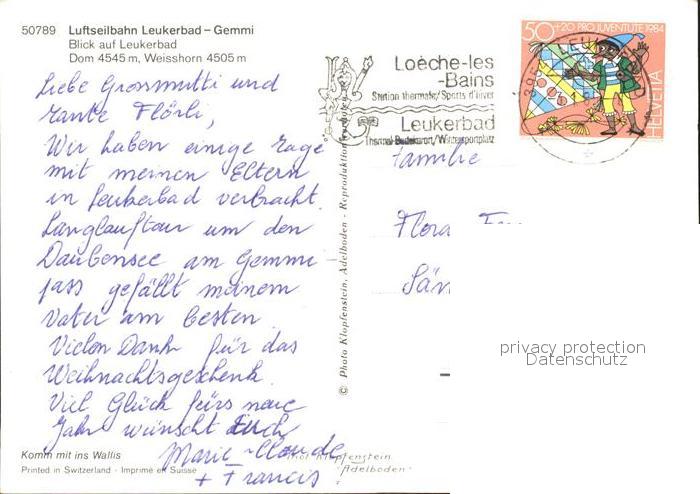 50789 Luftseilbahn Leukerbad – Gemmi
Blick auf Leukerbad
Dom 4545 m, Weisshorn 4505 m
Liebe Grossmutti und
Tante Flörli,
Wir haben einige Tage
mit meinen Eltern
in Leukerbad verbracht.
Langlauftour um den
Daubensee am Gemmi
pass gefällt meinem
Vater am besten.
Vielen Dank für das
Weihnachtsgeschenk.
Viel Glück fürs neue
Jahr wünscht Euch
Marie-Claude
+ Francis
Komm mit ins Wallis
Printed in Switzerland - Imprimé en Suisse
© Photo Klopfenstein, Adelboden - Reproduktion
Loèche-les
-Bains
Station thermale/Sports d'hiver
Leukerbad
Thermal-Badekurort/Wintersportplatz
50+20 PRO JUVENTUTE 1984
HELVETIA
LEUK
Familie
Flora
Klopfenstein
"Adelboden"
privacy protection
Datenschutz